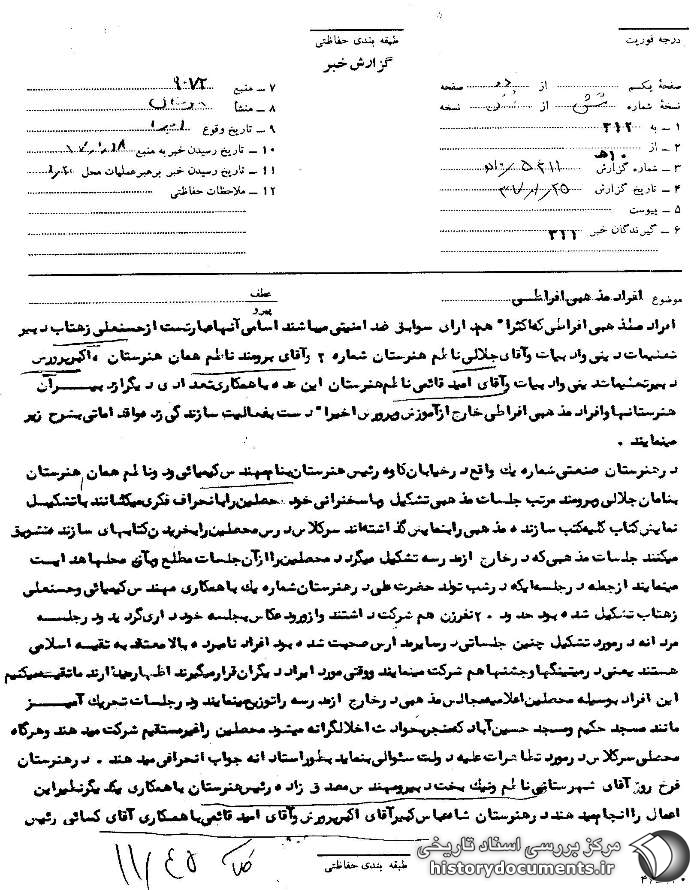 درجه فوریت
طبقه بندی حفاظتی
گزارش خبر
صفحهٔ یکم از دو صفحه
نسخهٔ شماره شش از شش نسخه
۱ ــ به ۳۱۲
۲ ــ از ۱۰ه
۳ ــ شماره گزارش
۴ ــ تاریخ گزارش
۵ ــ پیوست
۶ ــ گیرندگان خبر ۳۱۱
۷ ــ منبع ۹۰۷۲
۸ ــ منشأ
۹ ــ تاریخ وقوع اخیرا
۱۰ ــ تاریخ رسیدن خبر به منبع
۱۱ ــ تاریخ رسیدن خبر برهبر عملیات محل
۱۲ ــ ملاحظات حفاظتی
موضوع افراد مذهبی افراطی
عطف
پیرو
افراد مذهبی افراطی که اکثرا" هم دارای سوابق ضد امنیتی میباشند اسامی آنها عبارتست از حسنعلی زهتاب دبیر
تعلیمات دینی وادبیات وآقای جلالی ناظم هنرستان شماره ۲ وآقای برومند ناظم همان هنرستان ه اکبر پرورس
دبیر تعلیمات دینی وادبیات وآقای امید قائمی ناظم هنرستان این عده با همکاری تعدادی دیگر از دبیران
هنرستانها وافراد مذهبی افراطی خارج از آموزش وپرورس اخیرا" دست بفعالیت سازندگی زده واقداماتی بشرح زیر
مینمایند .
در هنرستان صنعتی شماره یك واقع در خیابان کاوه رئیس هنرستان بنام مهندس کیمیائی ودو ناظم همان هنرستان
بنامان جلالی وبرومند مرتب جلسات مذهبی تشکیل وبا سخنرانی خود محصلین را بانحراف فکری میکشانند با تشکیل
نمایش کتاب کلیه کتب سازنده مذهبی را بنمایش گذاشته اند سرکلاس درس محصلین را بخریدن کتابهای سازنده تشویق
میکنند جلسات مذهبی که در خارج از مدرسه تشکیل میگردد محصلین را از آن جلسات مطلع وبآن محلها هدایت
مینمایند از جمله در جلسه ایکه در شب تولد حضرت علی در هنرستان شماره یك با همکاری مهندس کیمیائی وحسنعلی
زهتاب تشکیل شده بود حدود ۲۰۰ نفر زن هم شرکت داشتند واز ورود عکاس بجلسه خودداری گردید ودر جلسه
مردانه در مورد تشکیل چنین جلساتی در سایر مدارس صحبت شده بود افراد نامبرده بالا معتقد به تقیه اسلامی
هستند یعنی در میتینگها وجشنها هم شرکت مینمایند ووقتی مورد ایراد دیگران قرار میگیرند اظهار میدارند ما تقیه میکنیم
این افراد بوسیله محصلین اعلامیه مجالس مذهبی در خارج از مدرسه را توزیع مینمایند ودر جلسات تحریك آمیز
مانند مسجد حکیم ومسجد حسین آباد که منجر بحوادث اخلالگرانه میشود محصلین را غیر مستقیم شرکت میدهند وهرگاه
محصلی سرکلاس در مورد تظاهرات علیه دولت سئوالی بنماید بطور استادانه جواب انحرافی میدهند . در هنرستان
فرخ روز آقای شهرستانی ناظم ونیك بخت دبیر ومهندس مصدق زاده رئیس هنرستان با همکاری یکدیگر نظیر این
اعمال را انجام میدهند در هنرستان شاه عباس کبیر آقای اکبر پرورش وآقای امید قائمی با همکاری آقای کسائی رئیس
طبقه بندی حفاظتی
۱۱/۴۵
مرکز بررسی اسناد تاریخی
historydocuments.ir